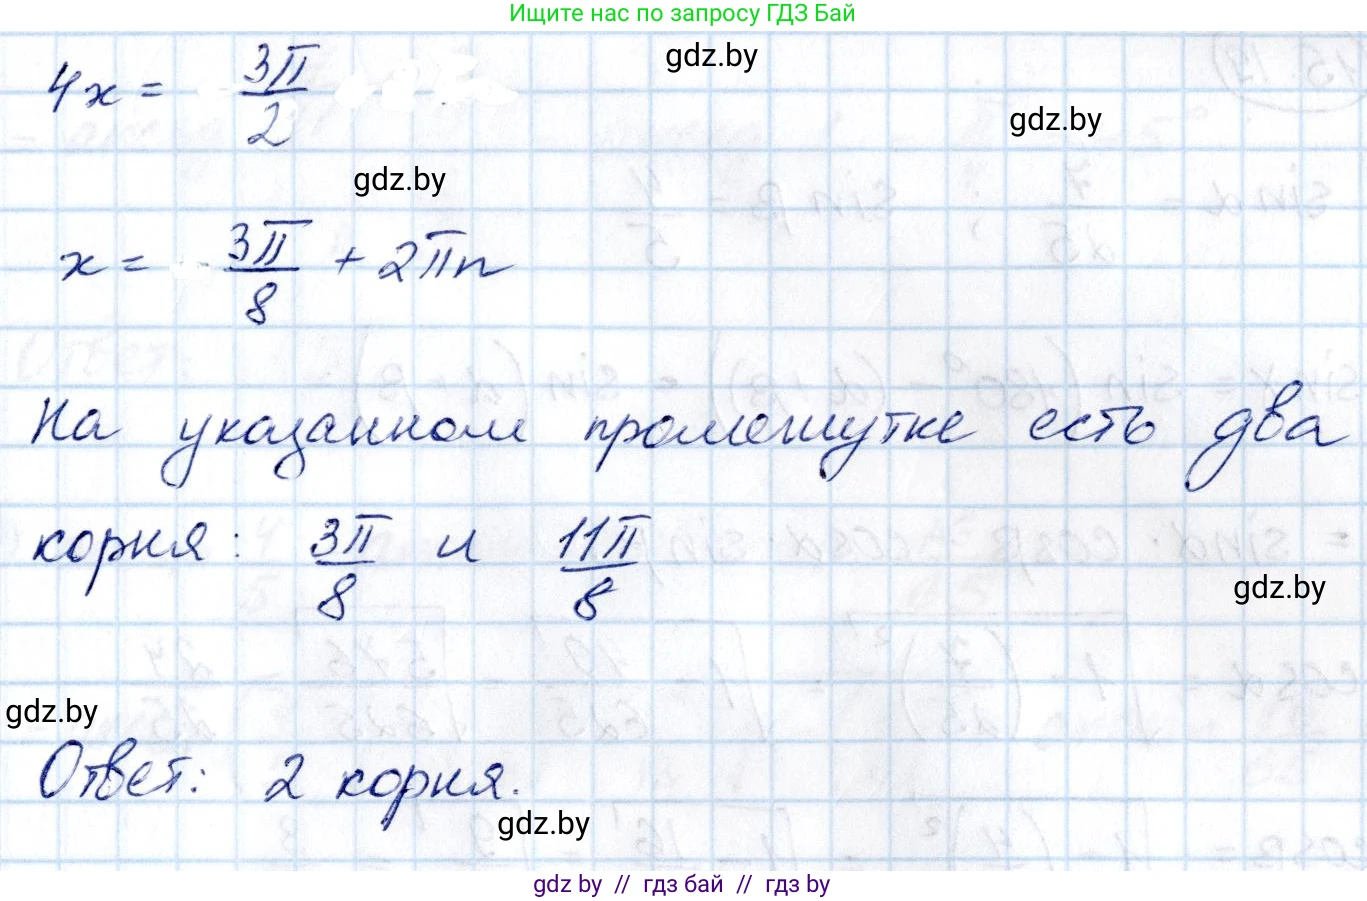 Ищите нас по запросу ГДЗ Бай
gdz.by
4x = 3π/2
gdz.by
gdz.by
x = 3π/8 + 2πn
На указанном промежутке есть два
корня: 3π/8 и 11π/8
gdz.by
gdz.by
Ответ: 2 корня.
gdz.by
gdz by // гдз бай // гдз by